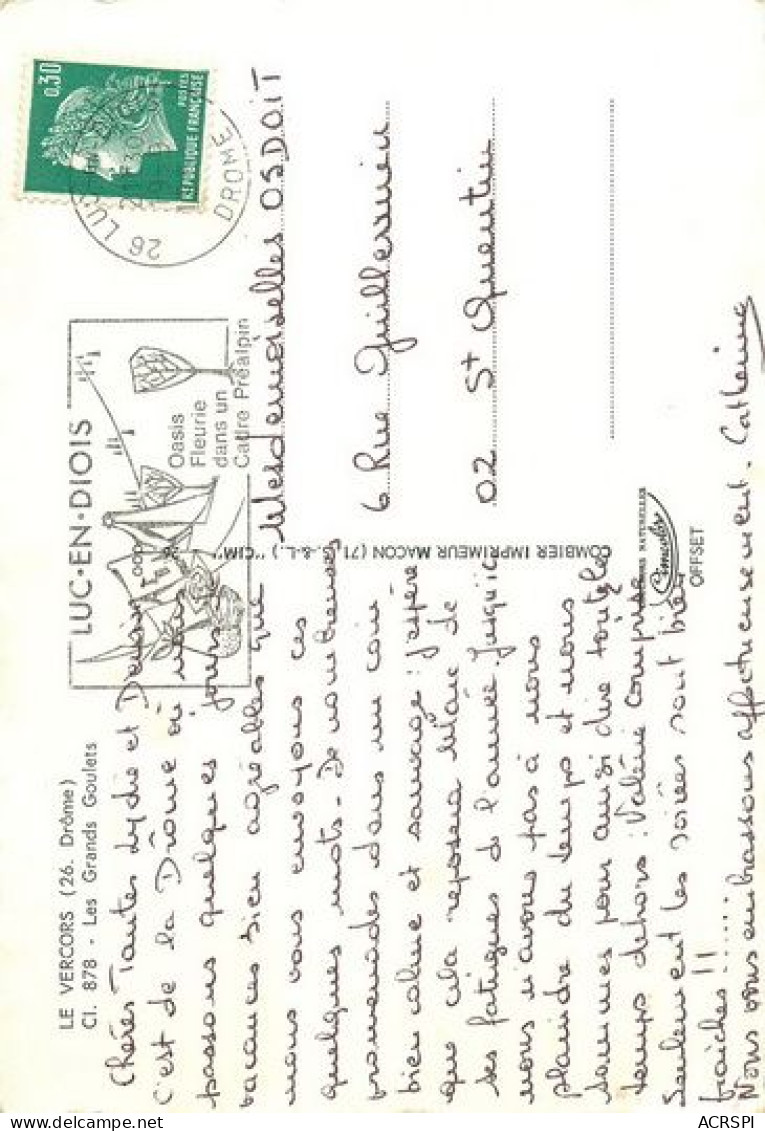 LE VERCORS (26. Drôme)
Cl. 878 - Les Grands Goulets
Chères Tantes Lydie et Denise
C'est de la Drôme où nous
passons quelques jours
vacances bien agréables que
nous vous envoyons ces
quelques mots - De nombreuses
promenades dans un coin
bien calme et sauvage : j'espère
que cela reposera Marc de
ses fatigues de l'année. Jusqu'ic
nous n'avons pas à nous
plaindre du temps et nous
sommes pour ainsi dire tout le
temps dehors : Valérie comprise
Seulement les soirées sont bien
fraîches !! .....
Nous vous embrassons affectueusement. Catherine
LUC-EN-DIOIS
Oasis
Fleurie
dans un
Cadre Préalpin
0,30
POSTES
REPUBLIQUE FRANÇAISE
26 LUC-EN-DIOIS
DROME
Mesdemoiselles OSDOIT
6 Rue
02 St Quentin
COMBIER IMPRIMEUR MACON (71 S.-&-L.) "CIM"
COULEURS NATURELLES
Cimcolor
OFFSET
ACRSPI